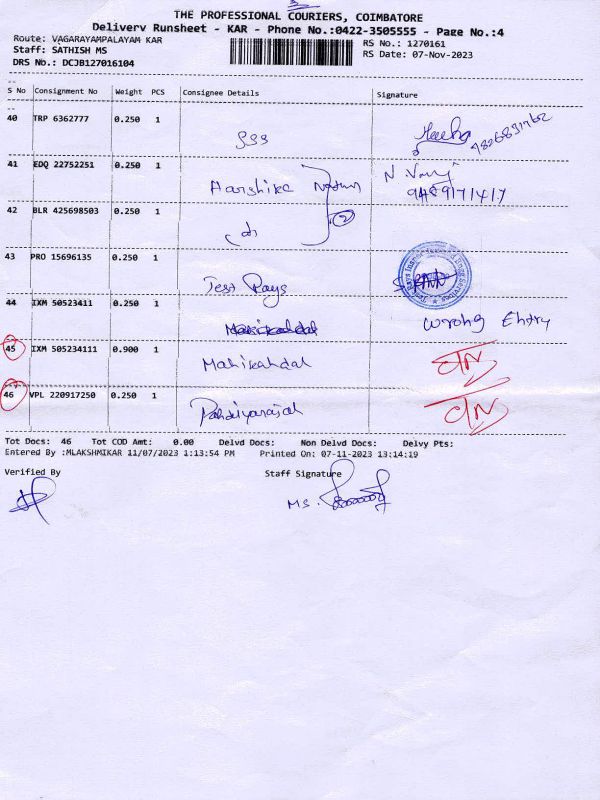 THE PROFESSIONAL COURIERS, COIMBATORE
Delivery Runsheet - KAR - Phone No.:0422-3505555 - Page No.:4
Route: VAGARAYAMPALAYAM KAR
RS No.: 1270161
Staff: SATHISH MS
RS Date: 07-Nov-2023
DRS No.: DCJB127016104
S No Consignment No Weight PCS Consignee Details Signature
40 TRP 6362777 0.250 1 SSS
41 EDQ 22752251 0.250 1 Aarshika
9489171417
42 BLR 425698503 0.250 1 2
43 PRO 15696135 0.250 1 Test Rays
44 IXM 50523411 0.250 1 Wrong Entry
45 IXM 505234111 0.900 1 Manikandan
46 VPL 220917250 0.250 1
Tot Docs: 46 Tot COD Amt: 0.00 Delvd Docs: Non Delvd Docs: Delvy Pts:
Entered By :MLAKSHMIKAR 11/07/2023 1:13:54 PM Printed On: 07-11-2023 13:14:19
Verified By Staff Signature
MS.